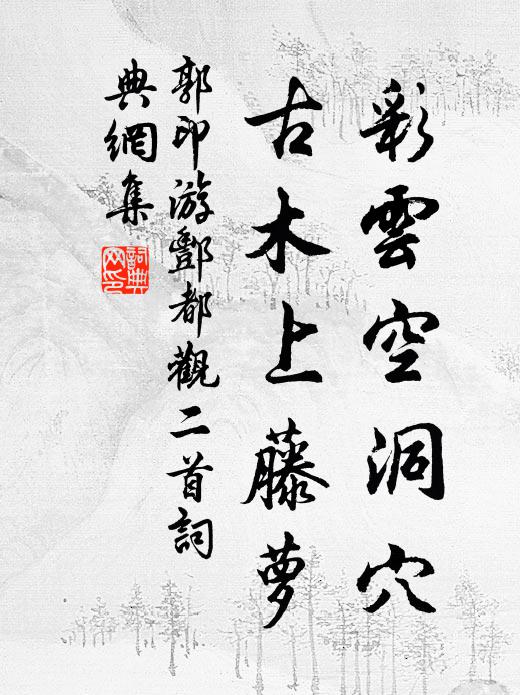 彩雲空洞穴
古木上藤蘿
郭印游酆都觀二首詞
典網集
詞典
网印